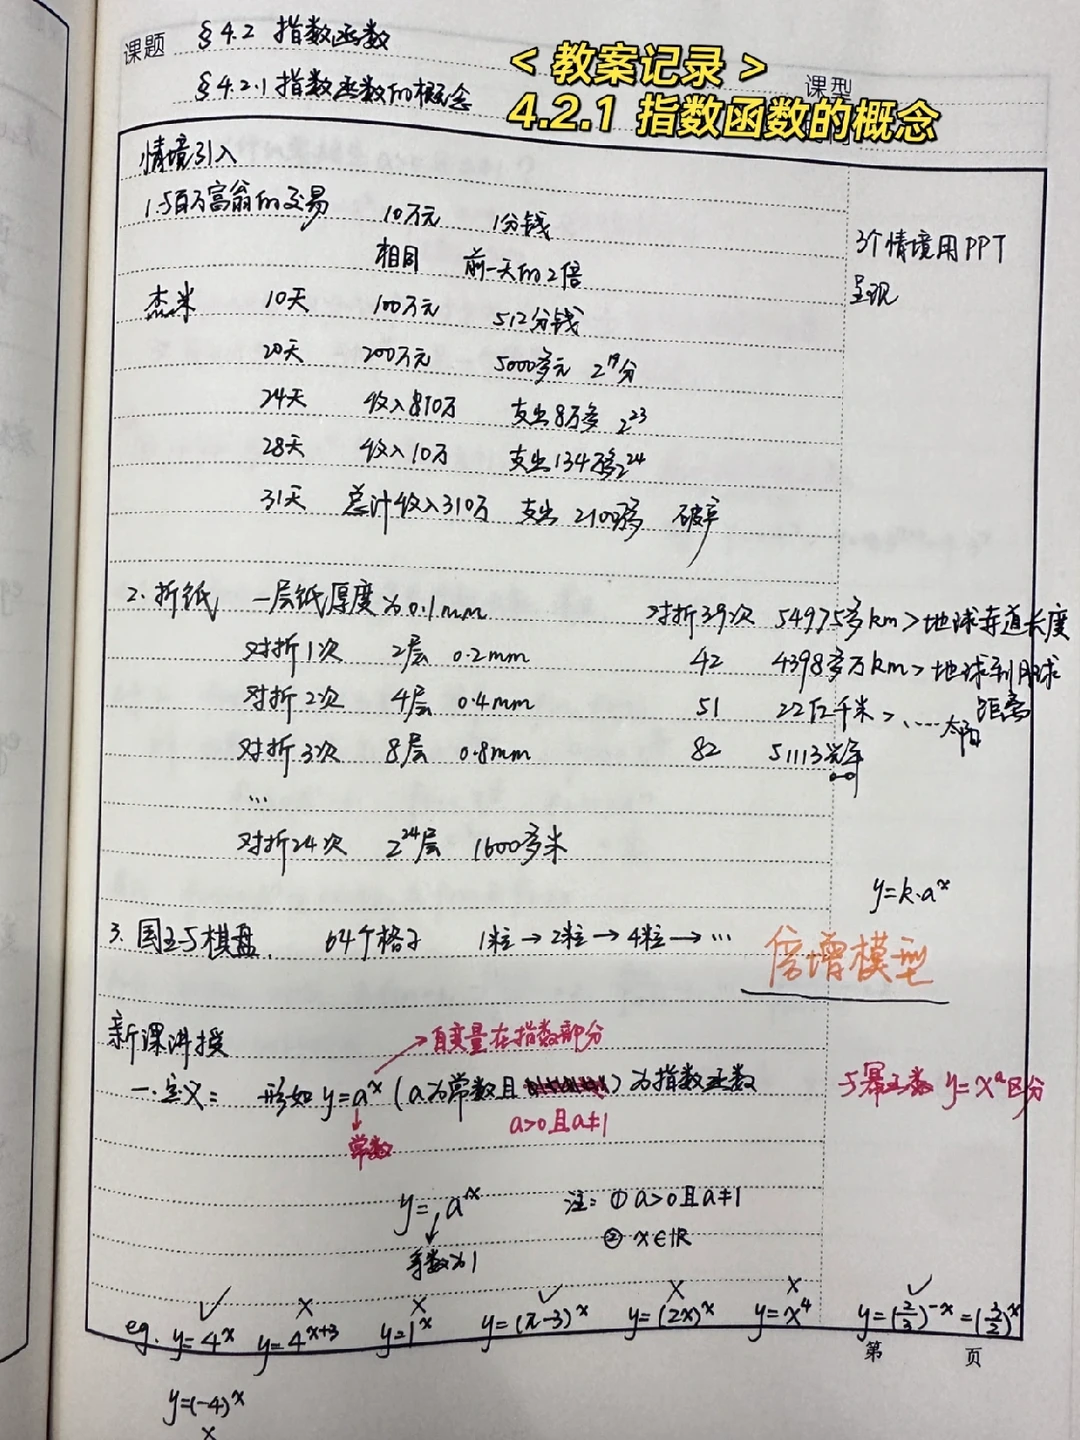 课题 §4.2 指数函数
§4.2.1 指数函数的概念
<教案记录>
4.2.1 指数函数的概念
课型
情境引入
1.与百万富翁的交易 10万元 1分钱
相同 前一天的2倍
杰米 10天 100万元 512分钱
20天 200万元 5000多元 2¹⁹分
24天 收入810万 支出8万多 2²³
28天 收入10万 支出134万多 2²⁴
31天 总计收入310万 支出 2100万多 破产
3个情境用PPT
呈现
2.折纸 一层纸厚度为0.1mm
对折1次 2层 0.2mm
对折2次 4层 0.4mm
对折3次 8层 0.8mm
...
对折24次 2²⁴层 1600多米
对折39次 54975多km>地球赤道长度
42 4398多万km>地球到月球
距离
51 22亿千米>......太阳
82 51113光年
y=k·aˣ
3.国王与棋盘. 64个格子 1粒→2粒→4粒→...
倍增模型
新课讲授
→自变量在指数部分
一.定义: 形如y=aˣ(a为常数且 )为指数函数
a>0且a≠1
常数
与幂函数 y=xᵃ区分
y=1aˣ 注: ①a>0且a≠1
系数为1 ② x∈R
✓ × × ✓ × × ✓
eg. y=4ˣ y=4ˣ⁺³ y=1ˣ y=(π-3)ˣ y=(2x)ˣ y=x⁴ y=(2/3)⁻ˣ=(3/2)ˣ
第 页
y=(-4)ˣ
×